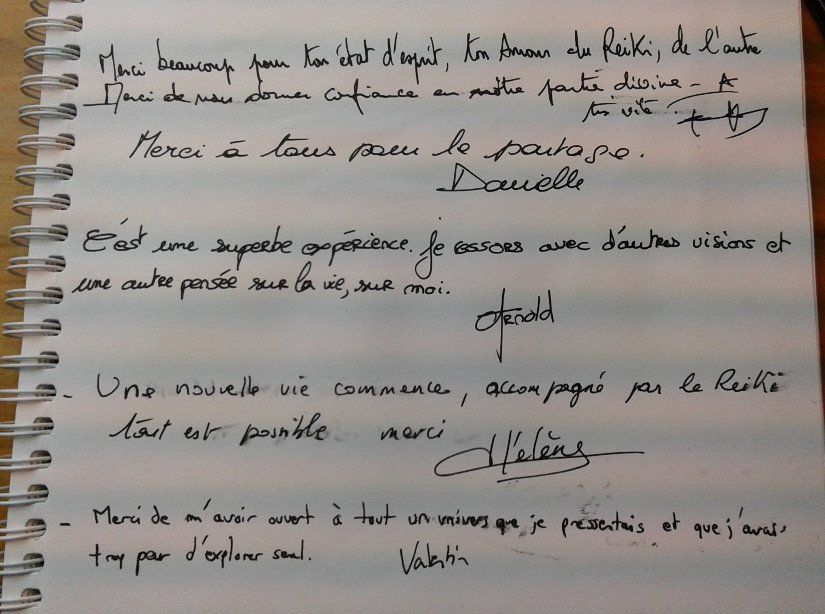 Merci beaucoup pour ton état d'esprit, ton Amour du Reiki, de l'autre
Merci de nous donner confiance en nôtre partie divine - A
très vite.
Merci à tous pour le partage.
Danielle
C'est une superbe expérience. Je ressors avec d'autres visions et
une autre pensée sur la vie, sur moi.
Arnold
- Une nouvelle vie commence, accompagné par le Reiki
tout est possible merci
Hélène
- Merci de m'avoir ouvert à tout un univers que je pressentais et que j'avais
trop peur d'explorer seul. Valentin